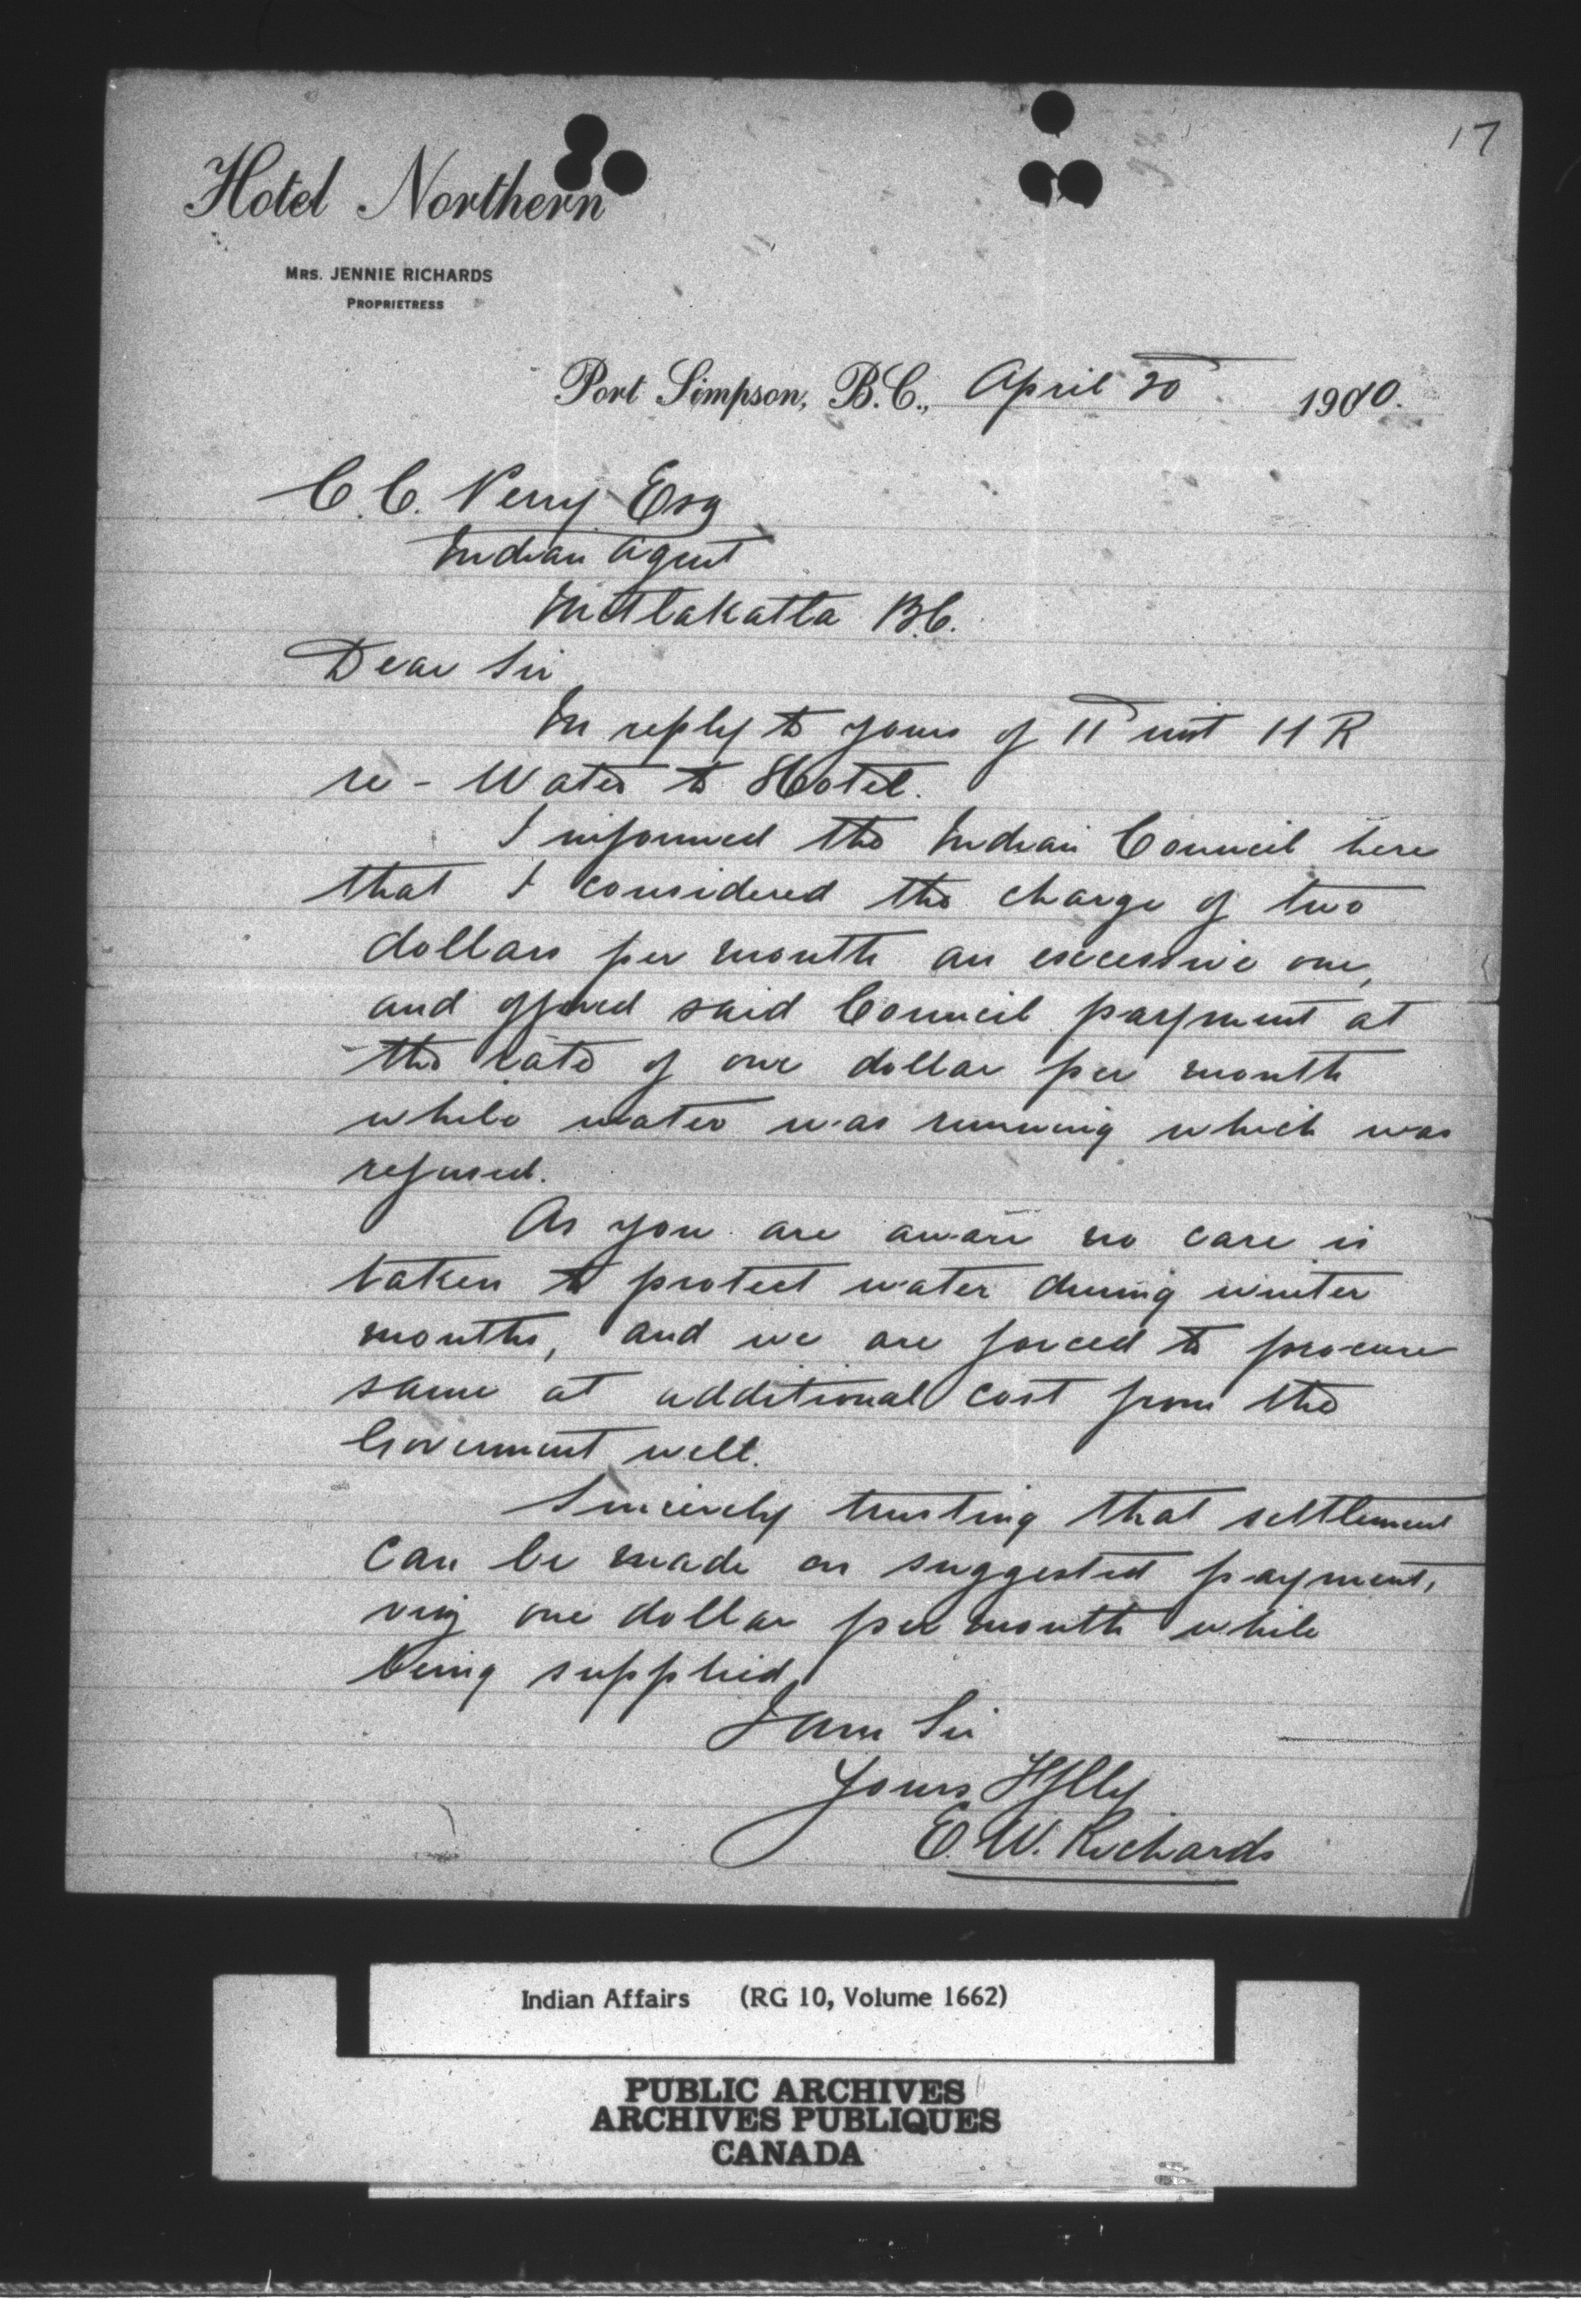 17
Hotel Northern
MRS. JENNIE RICHARDS
PROPRIETRESS
Port Simpson, B.C., April 20 1910.
C. C. Perry Esq
Indian Agent
Metlakatla B.C.
Dear Sir
In reply to yours of 11 inst 11 R
re - Water to Hotel.
I informed the Indian Council here
that I considered the charge of two
dollars per month an excessive one,
and offered said Council payment at
the rate of one dollar per month
while water was running which was
refused.
As you are aware no care is
taken to protect water during winter
months, and we are forced to procure
same at additional cost from the
Government well.
Sincerely trusting that settlement
can be made on suggested payment,
viz one dollar per month while
being supplied,
I am Sir
Yours
E. W. Richards
Indian Affairs (RG 10, Volume 1662)
PUBLIC ARCHIVES
ARCHIVES PUBLIQUES
CANADA